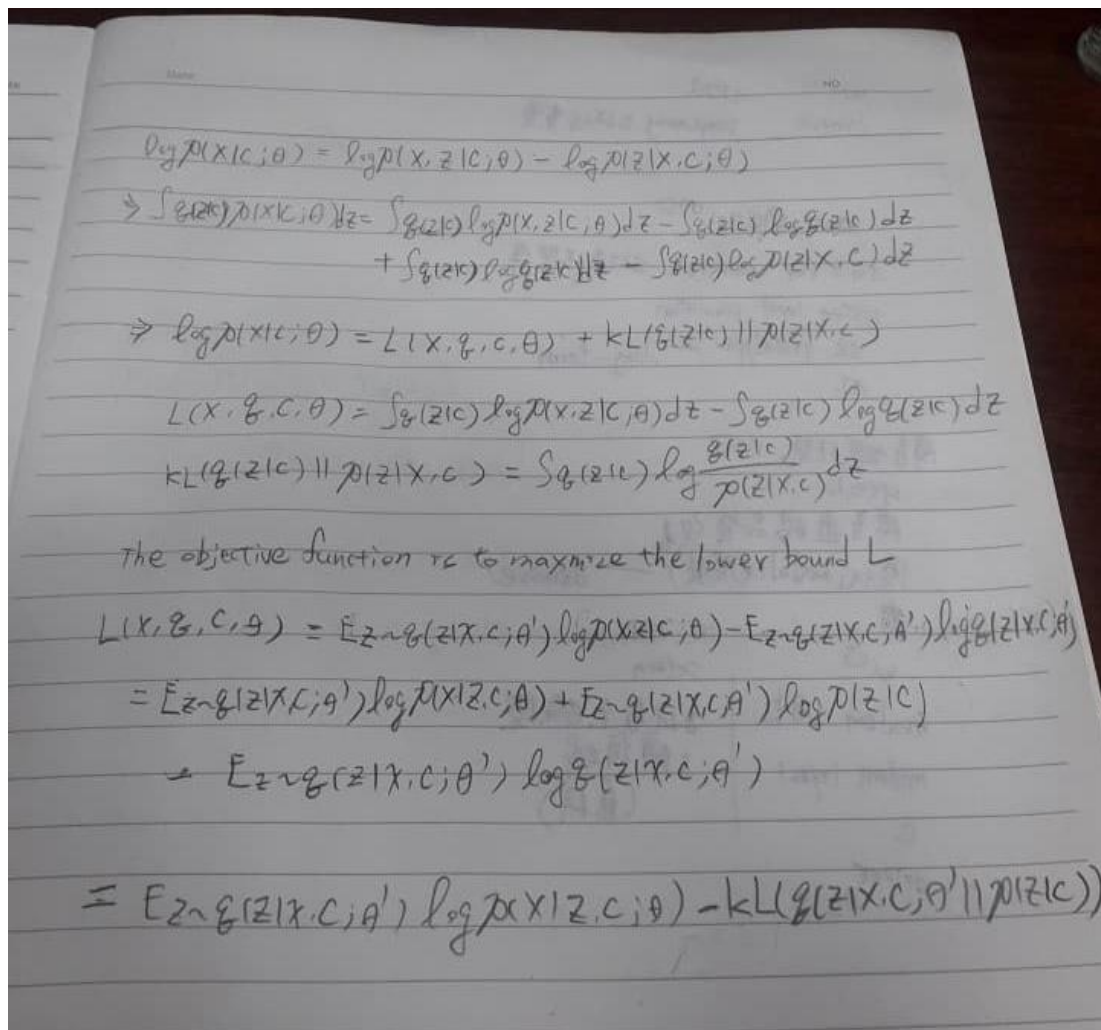 NO.
log p(X|C;θ) = log p(X,Z|C;θ) - log p(Z|X,C;θ)
⇒ ∫q(z|c) p(X|c;θ)dz = ∫q(z|c) log p(X,z|c;θ)dz - ∫q(z|c) log q(z|c)dz
+ ∫q(z|c) log q(z|c)dz - ∫q(z|c) log p(z|X,C)dz
⇒ log p(X|c;θ) = L(X,q,c,θ) + KL(q(z|c)||p(z|X,c)
L(X,q,C,θ) = ∫q(z|c) log p(X,z|c;θ)dz - ∫q(z|c) log q(z|c)dz
KL(q(z|c)||p(z|X,c) = ∫q(z|c) log q(z|c)/p(z|X,c) dz
The objective function is to maxmize the lower bound L
L(X,q,C,θ) = E z~q(z|X,C;θ') log p(X,z|C;θ) - E z~q(z|X,C;θ') log q(z|X,C;θ')
= E z~q(z|X,C;θ') log p(X|z,C;θ) + E z~q(z|X,C,θ') log p(z|C)
- E z~q(z|X,C;θ') log q(z|X,C;θ')
= E z~q(z|X,C;θ') log p(X|z,C;θ) - KL(q(z|X,C;θ'||p(z|C))